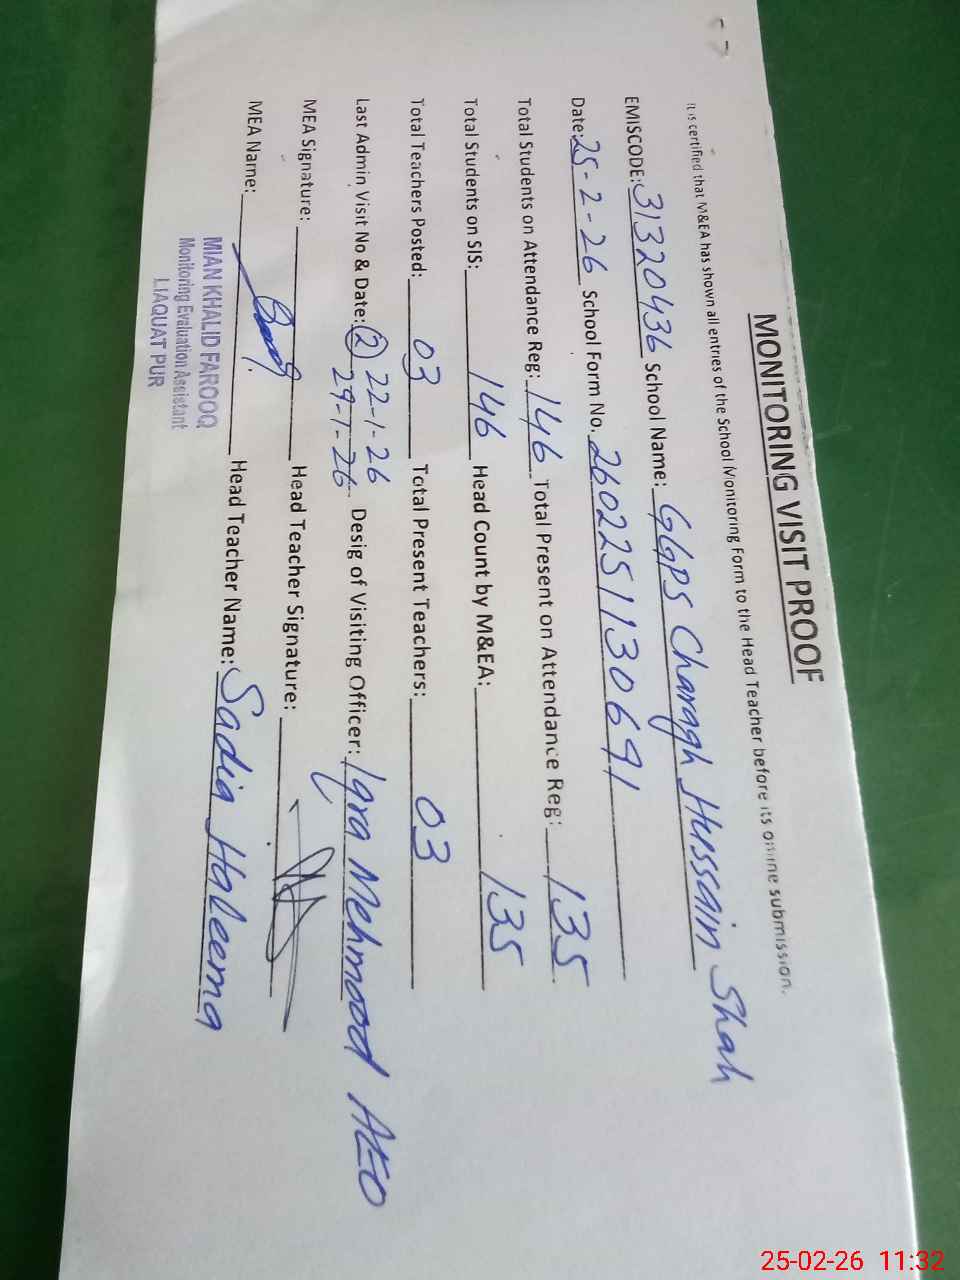 MONITORING VISIT PROOF
It is certified that M&EA has shown all entries of the School Monitoring Form to the Head Teacher before its online submission.
EMISCODE: 31320436 School Name: GGPS Charagh Hussain Shah
Date: 25-2-26 School Form No. 2602251130691
Total Students on Attendance Reg: 146 Total Present on Attendance Reg: 135
Total Students on SIS: 146 Head Count by M&EA: 135
Total Teachers Posted: 03 Total Present Teachers: 03
Last Admin Visit No & Date: 2 22-1-26 29-1-26 Desig of Visiting Officer: Iqra Mehmood AEO
MEA Signature: Head Teacher Signature:
MEA Name: Head Teacher Name: Sadia Haleema
MIAN KHALID FAROOQ
Monitoring Evaluation Assistant
LIAQUAT PUR
25-02-26 11:32